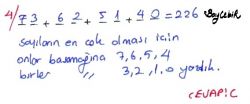 4/ 73 + 62 + 51 + 40 = 226
Sayıların en çok olması için
onlar basamağına 7, 6, 5, 4
birler " 3, 2, 1, 0 yazdık.
CEVAP: C